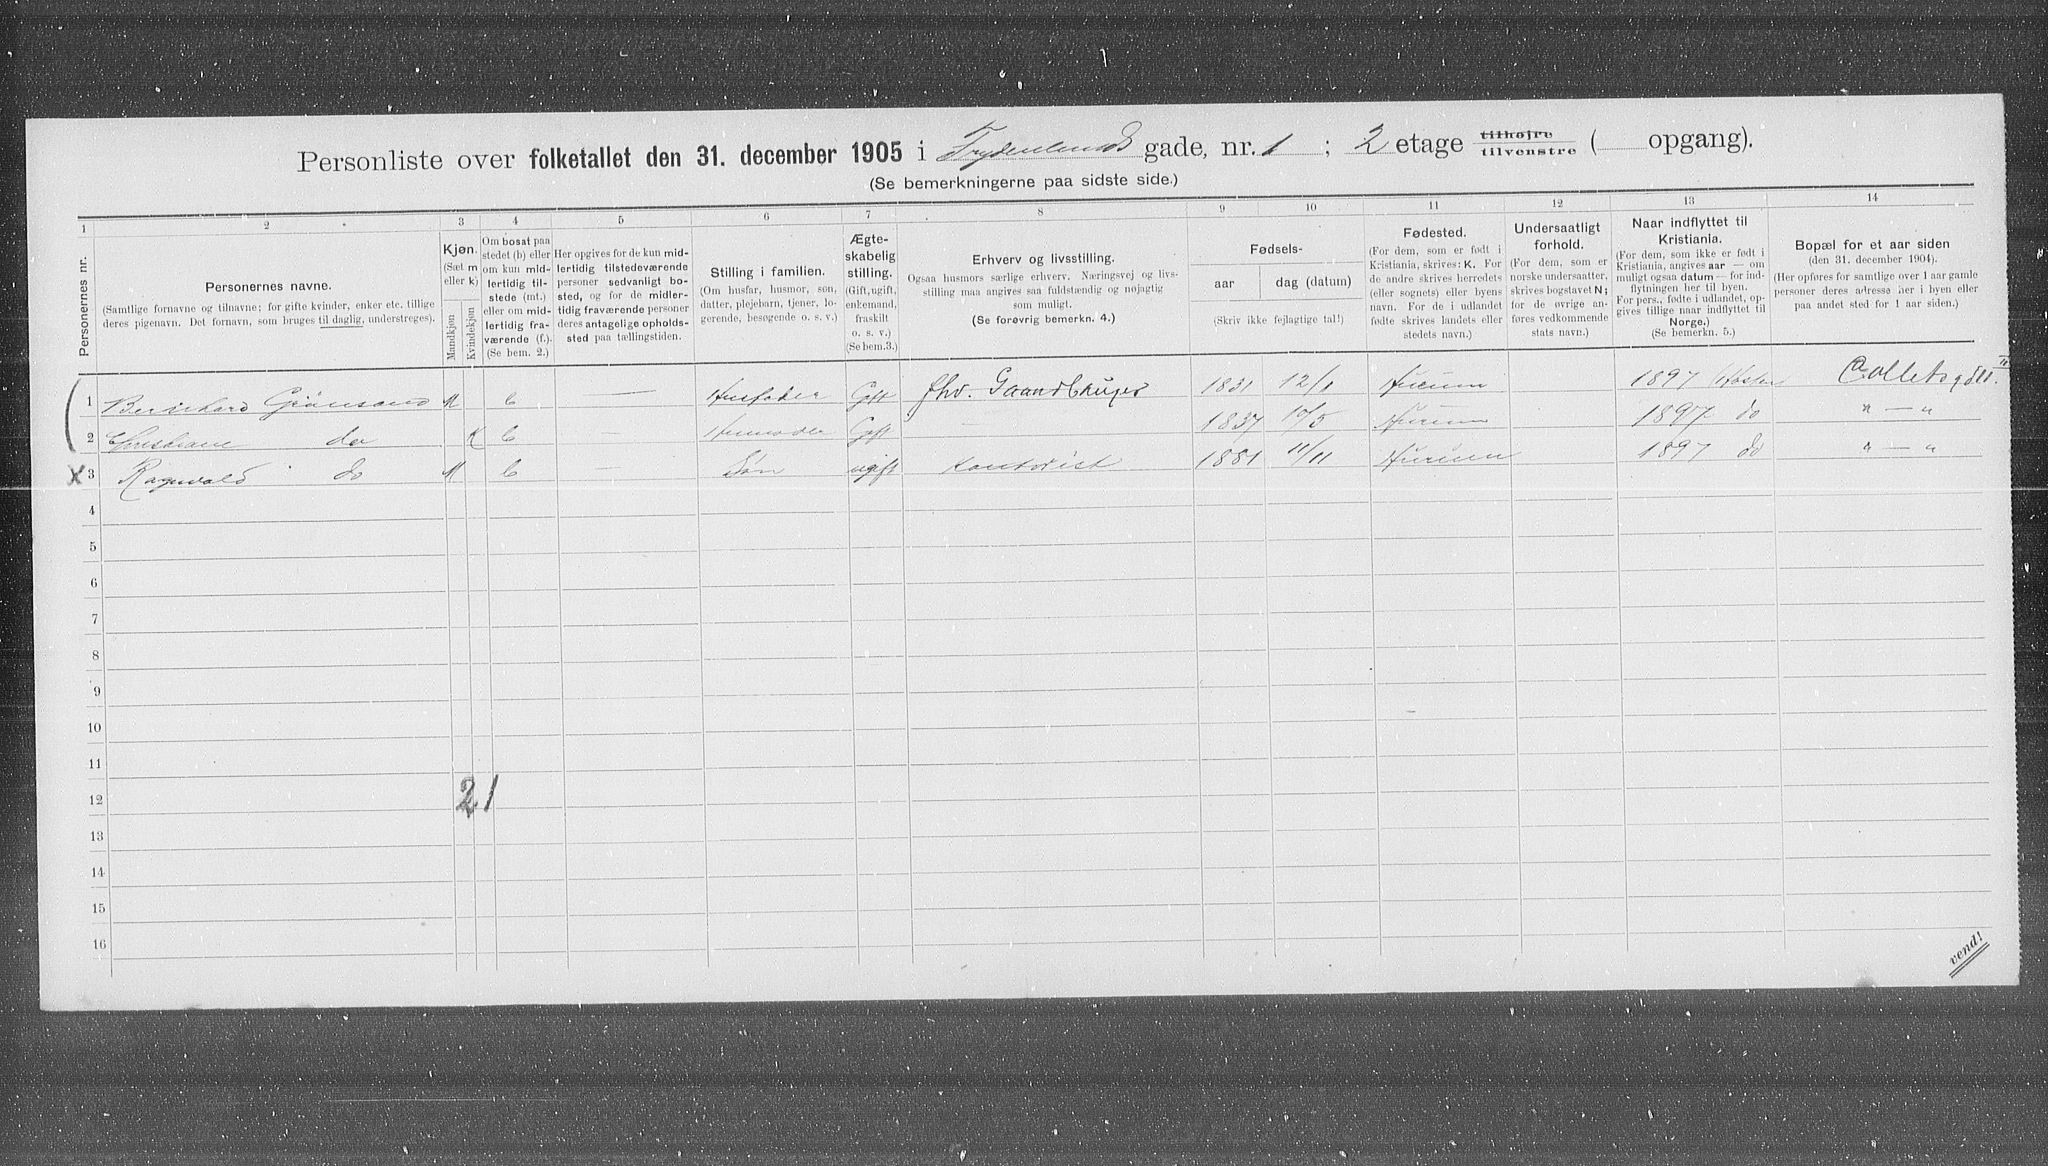 Personliste over folketallet den 31. december 1905 i Frydenlunds gade, nr. 1 ; 2 etage tilhøjre tilvenstre ( opgang).
(Se bemerkningerne paa sidste side.)
1 2 3 4 5 6 7 8 9 10 11 12 13 14
Personernes nr.
Personernes navne.
(Samtlige fornavne og tilnavne; for gifte kvinder, enker etc. tillige
deres pigenavn. Det fornavn, som bruges til daglig, understreges).
Kjøn.
(Sæt m
eller k)
Mandkjøn
Kvindekjøn
Om bosat paa
stedet (b) eller
om kun mid-
lertidig til-
stede (mt.)
eller om mid-
lertidig fra-
værende (f.).
(Se bem. 2.)
Her opgives for de kun mid-
lertidig tilstedeværende
personer sedvanligt bo-
sted, og for de midler-
tidig fraværende personer
deres antagelige opholds-
sted paa tællingstiden.
Stilling i familien.
(Om husfar, husmor, søn,
datter, plejebarn, tjener, lo-
gerende, besøgende o. s. v.)
Ægte-
skabelig
stilling.
(Gift, ugift,
enkemand,
fraskilt
o. s. v.)
(Se bem.3.)
Erhverv og livsstilling.
Ogsaa husmors særlige erhverv. Næringsvej og livs-
stilling maa angives saa fuldstændig og nøjagtig
som muligt.
(Se forøvrig bemerkn. 4.)
Fødsels-
aar dag (datum)
(Skriv ikke fejlagtige tal!)
Fødested.
(For dem, som er født i
Kristiania, skrives: K. For
de andre skrives herredets
(eller sognets) eller byens
navn. For de i udlandet
fødte skrives landets eller
stedets navn.)
Undersaatligt
forhold.
(For dem, som er
norske undersaatter,
skrives bogstavet N;
for de øvrige an-
føres vedkommende
stats navn.)
Naar indflyttet til
Kristiania.
(For dem, som ikke er født i
Kristiania, angives aar — om
muligt ogsaa datum — for ind-
flytningen her til byen.
For pers., fødte i udlandet, op-
gives tillige naar indflyttet til
Norge.)
(Se bemerkn. 5.)
Bopæl for et aar siden
(den 31. december 1904).
(Her opføres for samtlige over 1 aar gamle
personer deres adresse her i byen eller
paa andet sted for 1 aar siden.)
1 Bernhard Grönsand M b — Husfader Gift fhv. Gaardbruger 1831 12/1 Hurum 1897 Collets gd
2 Christiane do K b — Husmoder Gift — 1837 10/5 Hurum 1897 do " — "
x 3 Ragnvald do M b — Søn ugift Kontorist 1881 11/11 Hurum 1897 do " — "
4
5
6
7
8
9
10
11
12
13
14
15
16
2 1
vend!